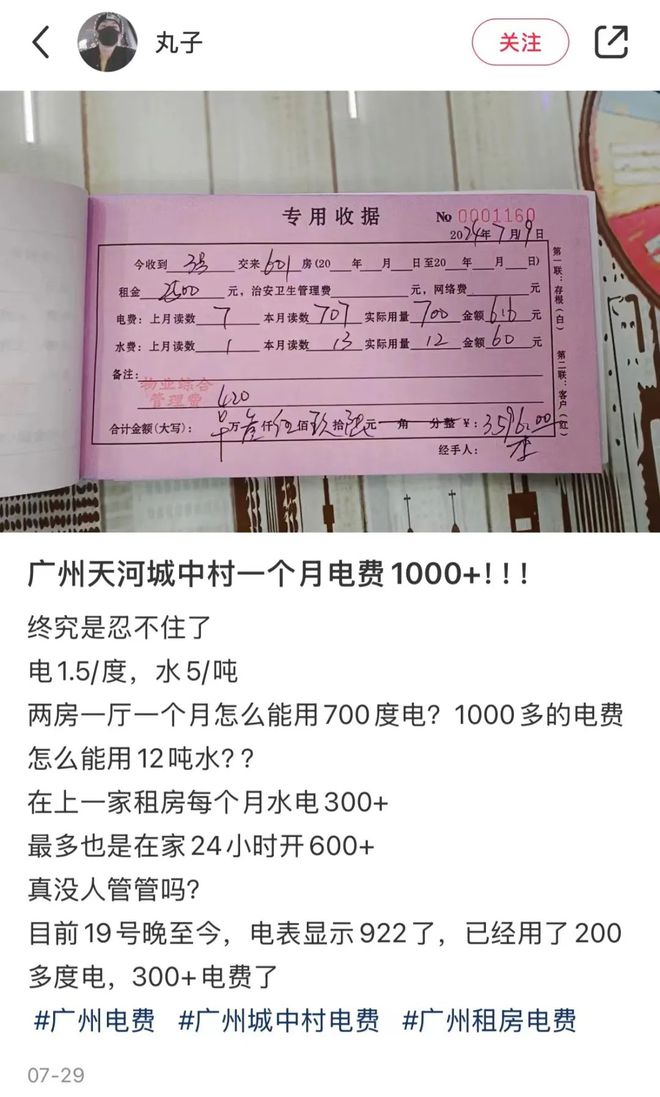 丸子
关注
专用收据
No 0001160
2024年7月19日
今收到 交来601房(20 年 月 日至20 年 月 日)
租金2500元，治安卫生管理费 元，网络费 元
电费：上月读数 7 本月读数 707 实际用量 700 金额 616 元
水费：上月读数 1 本月读数 13 实际用量 12 金额 60 元
备注：
物业综合
管理费 420
合计金额(大写)： 万 仟 佰玖拾 元 角 分整 ¥：3596.00
经手人：
第一联：存根(白)
第二联：客户(红)
广州天河城中村一个月电费1000+！！！
终究是忍不住了
电1.5/度，水5/吨
两房一厅一个月怎么能用700度电？1000多的电费
怎么能用12吨水？？
在上一家租房每个月水电300+
最多也是在家24小时开600+
真没人管管吗？
目前19号晚至今，电表显示922了，已经用了200
多度电，300+电费了
#广州电费 #广州城中村电费 #广州租房电费
07-29